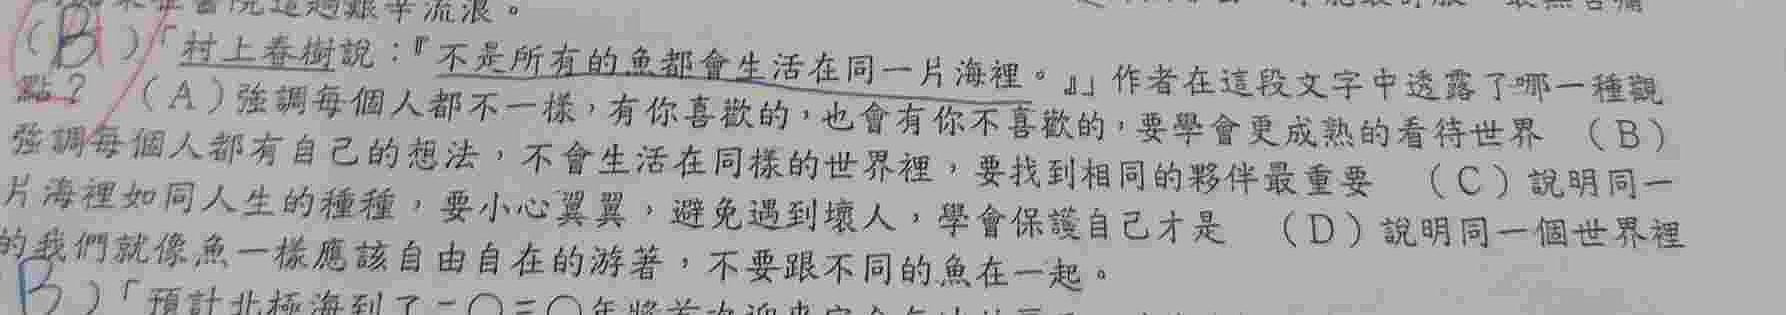 流浪。
(B)「村上春樹說：『不是所有的魚都會生活在同一片海裡。』」作者在這段文字中透露了哪一種觀
點？ (A)強調每個人都不一樣，有你喜歡的，也會有你不喜歡的，要學會更成熟的看待世界 (B)
強調每個人都有自己的想法，不會生活在同樣的世界裡，要找到相同的夥伴最重要 (C)說明同一
片海裡如同人生的種種，要小心翼翼，避免遇到壞人，學會保護自己才是 (D)說明同一個世界裡
的我們就像魚一樣應該自由自在的游著，不要跟不同的魚在一起。
B)「預計北極海到了二〇三〇年將首次迎來